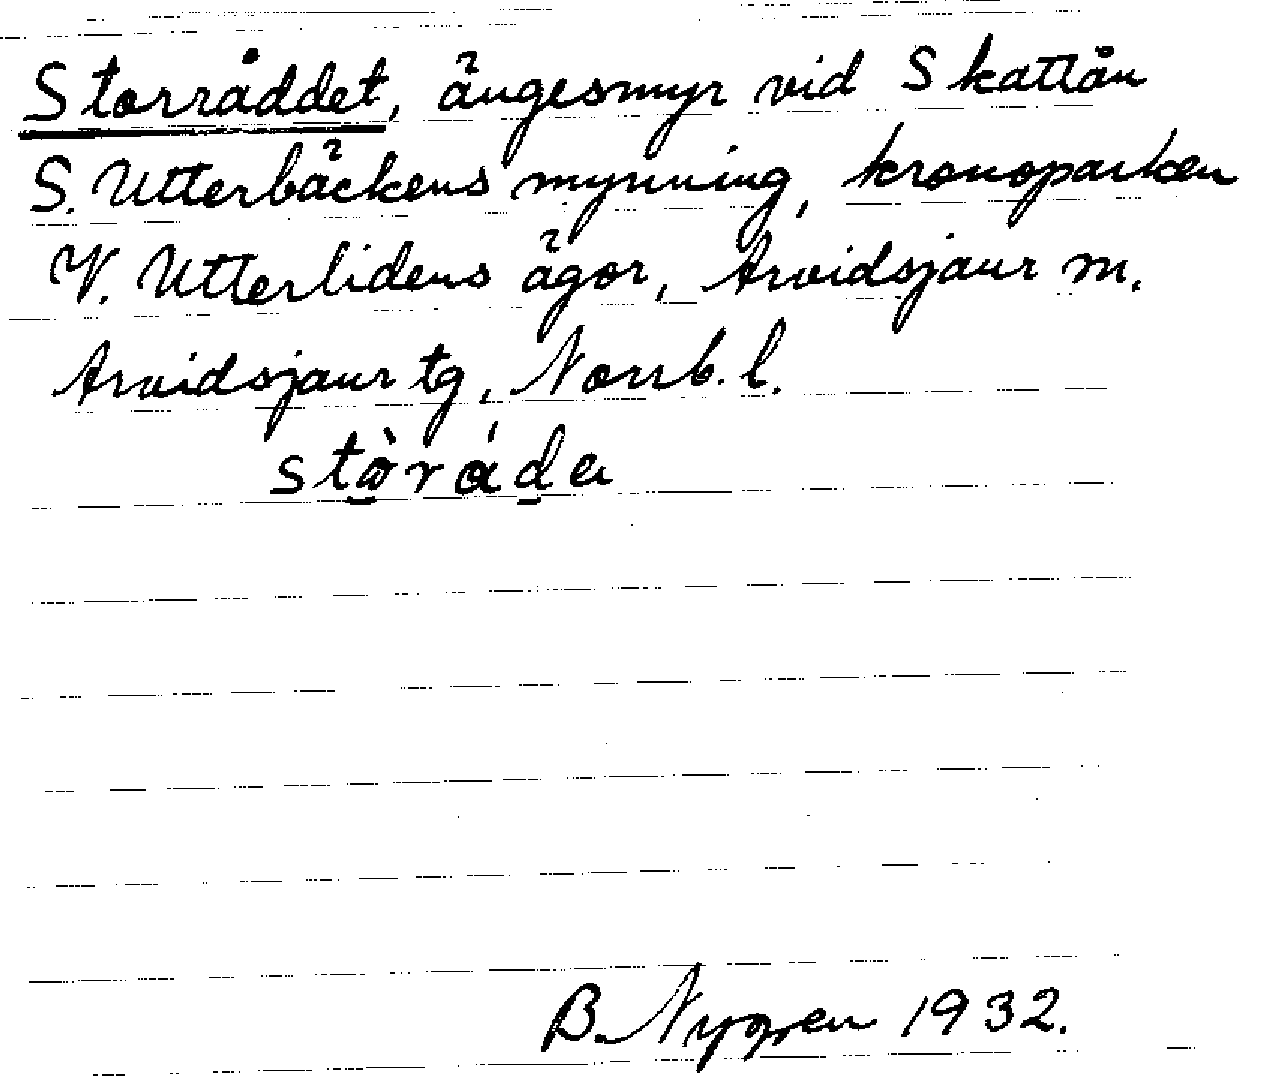 Storråddet, ängesmyr vid Skatlån
S. Utterbäckens mynning, kronoparken
V. Utterlidens ägor, Arvidsjaur m.
Arvidsjaur tg, Norrb. l.
B. Nygren 1932.